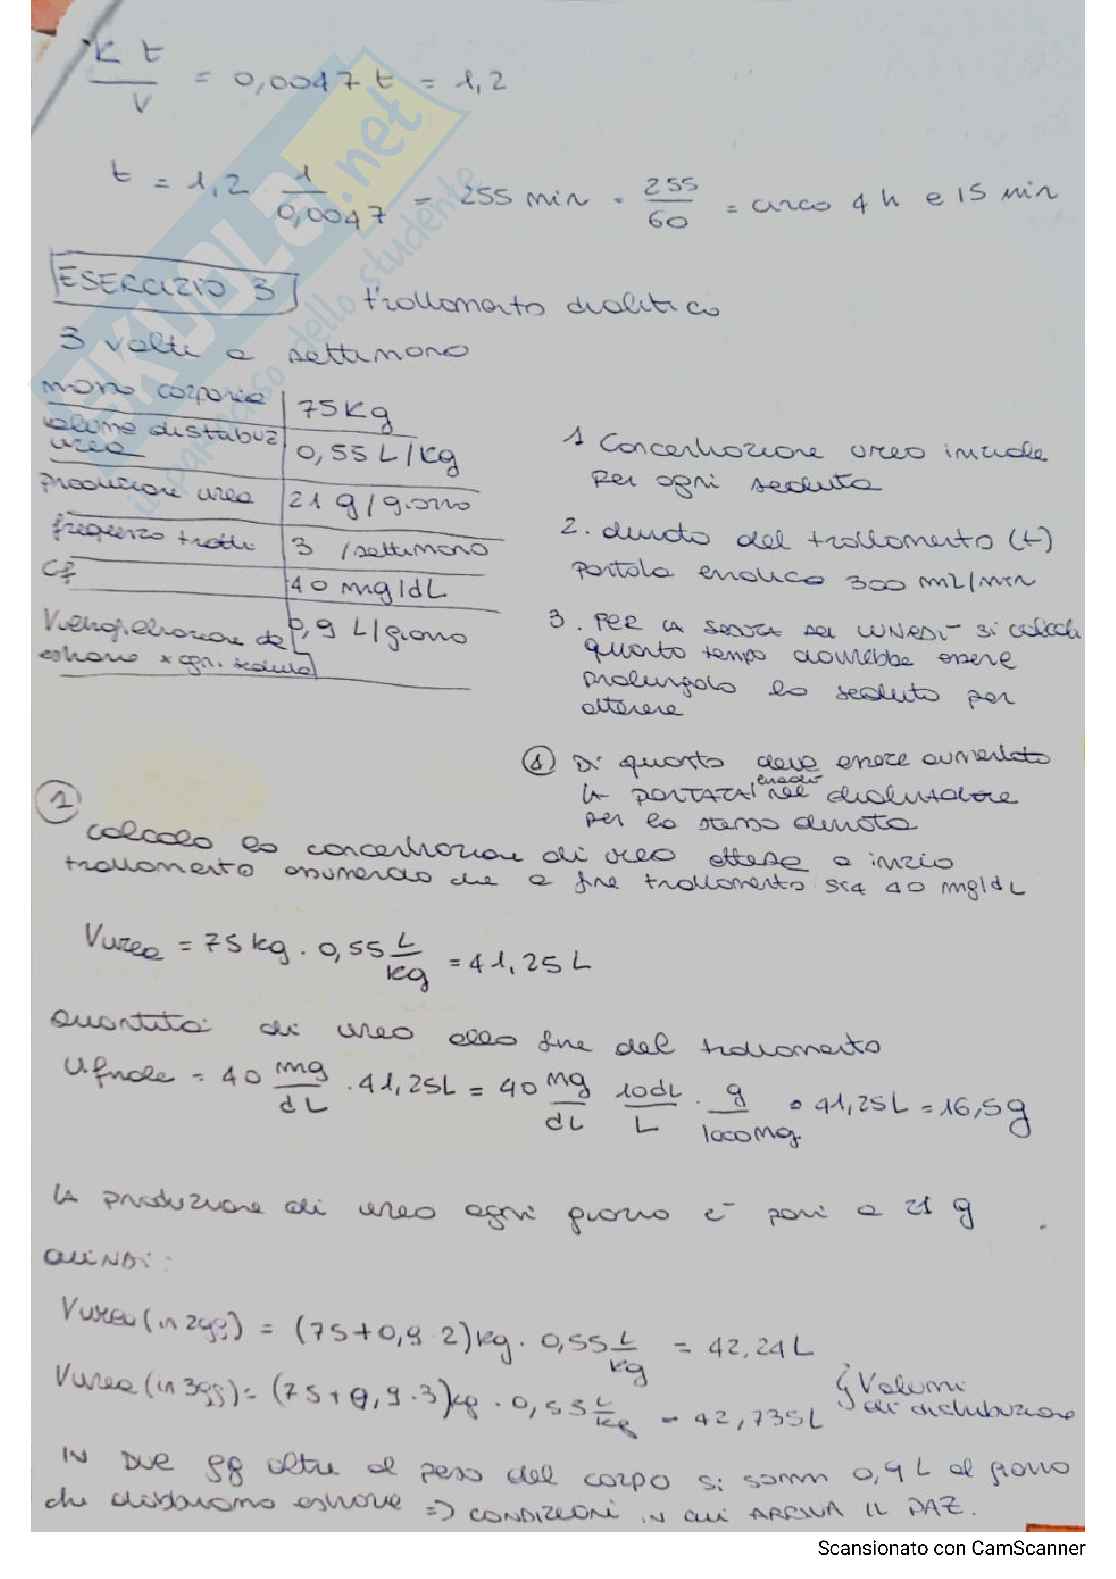 K t / V = 0,0047 t = 1,2
t = 1,2 1/0,0047 = 255 min = 255/60 = circa 4 h e 15 min
ESERCIZIO 3 trattamento dialitico
3 volte a settimana
massa corporea 75 Kg
volume distribuz urea 0,55 L/Kg
produzione urea 21 g/giorno
frequenza tratt. 3 /settimana
Cf 40 mg/dL
V ultrafiltrazione da estrarre x ogni seduta 0,9 L/giorno
1 Concentrazione urea iniziale
per ogni seduta
2. durata del trattamento (t)
portata ematica 300 mL/min
3. PER LA SEDUTA DEL LUNEDI' si calcoli
quanto tempo dovrebbe essere
prolungata la seduta per
ottenere
4 Di quanto deve essere aumentata
LA PORTATA ematica nel dializzatore
per la stessa durata
1
calcolo la concentrazione di urea attesa a inizio
trattamento assumendo che a fine trattamento sia 40 mg/dL
Vurea = 75 kg · 0,55 L/kg = 41,25 L
Quantità di urea alla fine del trattamento
Ufinale = 40 mg/dL · 41,25L = 40 mg/dL 10dL/L · g/1000mg · 41,25L = 16,5g
LA produzione di urea ogni giorno è pari a 21 g
QUINDI:
Vurea (in 2gg) = (75+0,9·2)kg · 0,55 L/kg = 42,24 L
Vurea (in 3gg) = (75+0,9·3)kg · 0,55 L/kg = 42,735L
Volumi
di distribuzione
IN DUE gg oltre al peso del corpo si somm 0,9 L al giorno
che dobbiamo estrarre => CONDIZIONI IN CUI ARRIVA IL PAZ.
SKUOLA.net
il paradiso dello studente
Scansionato con CamScanner